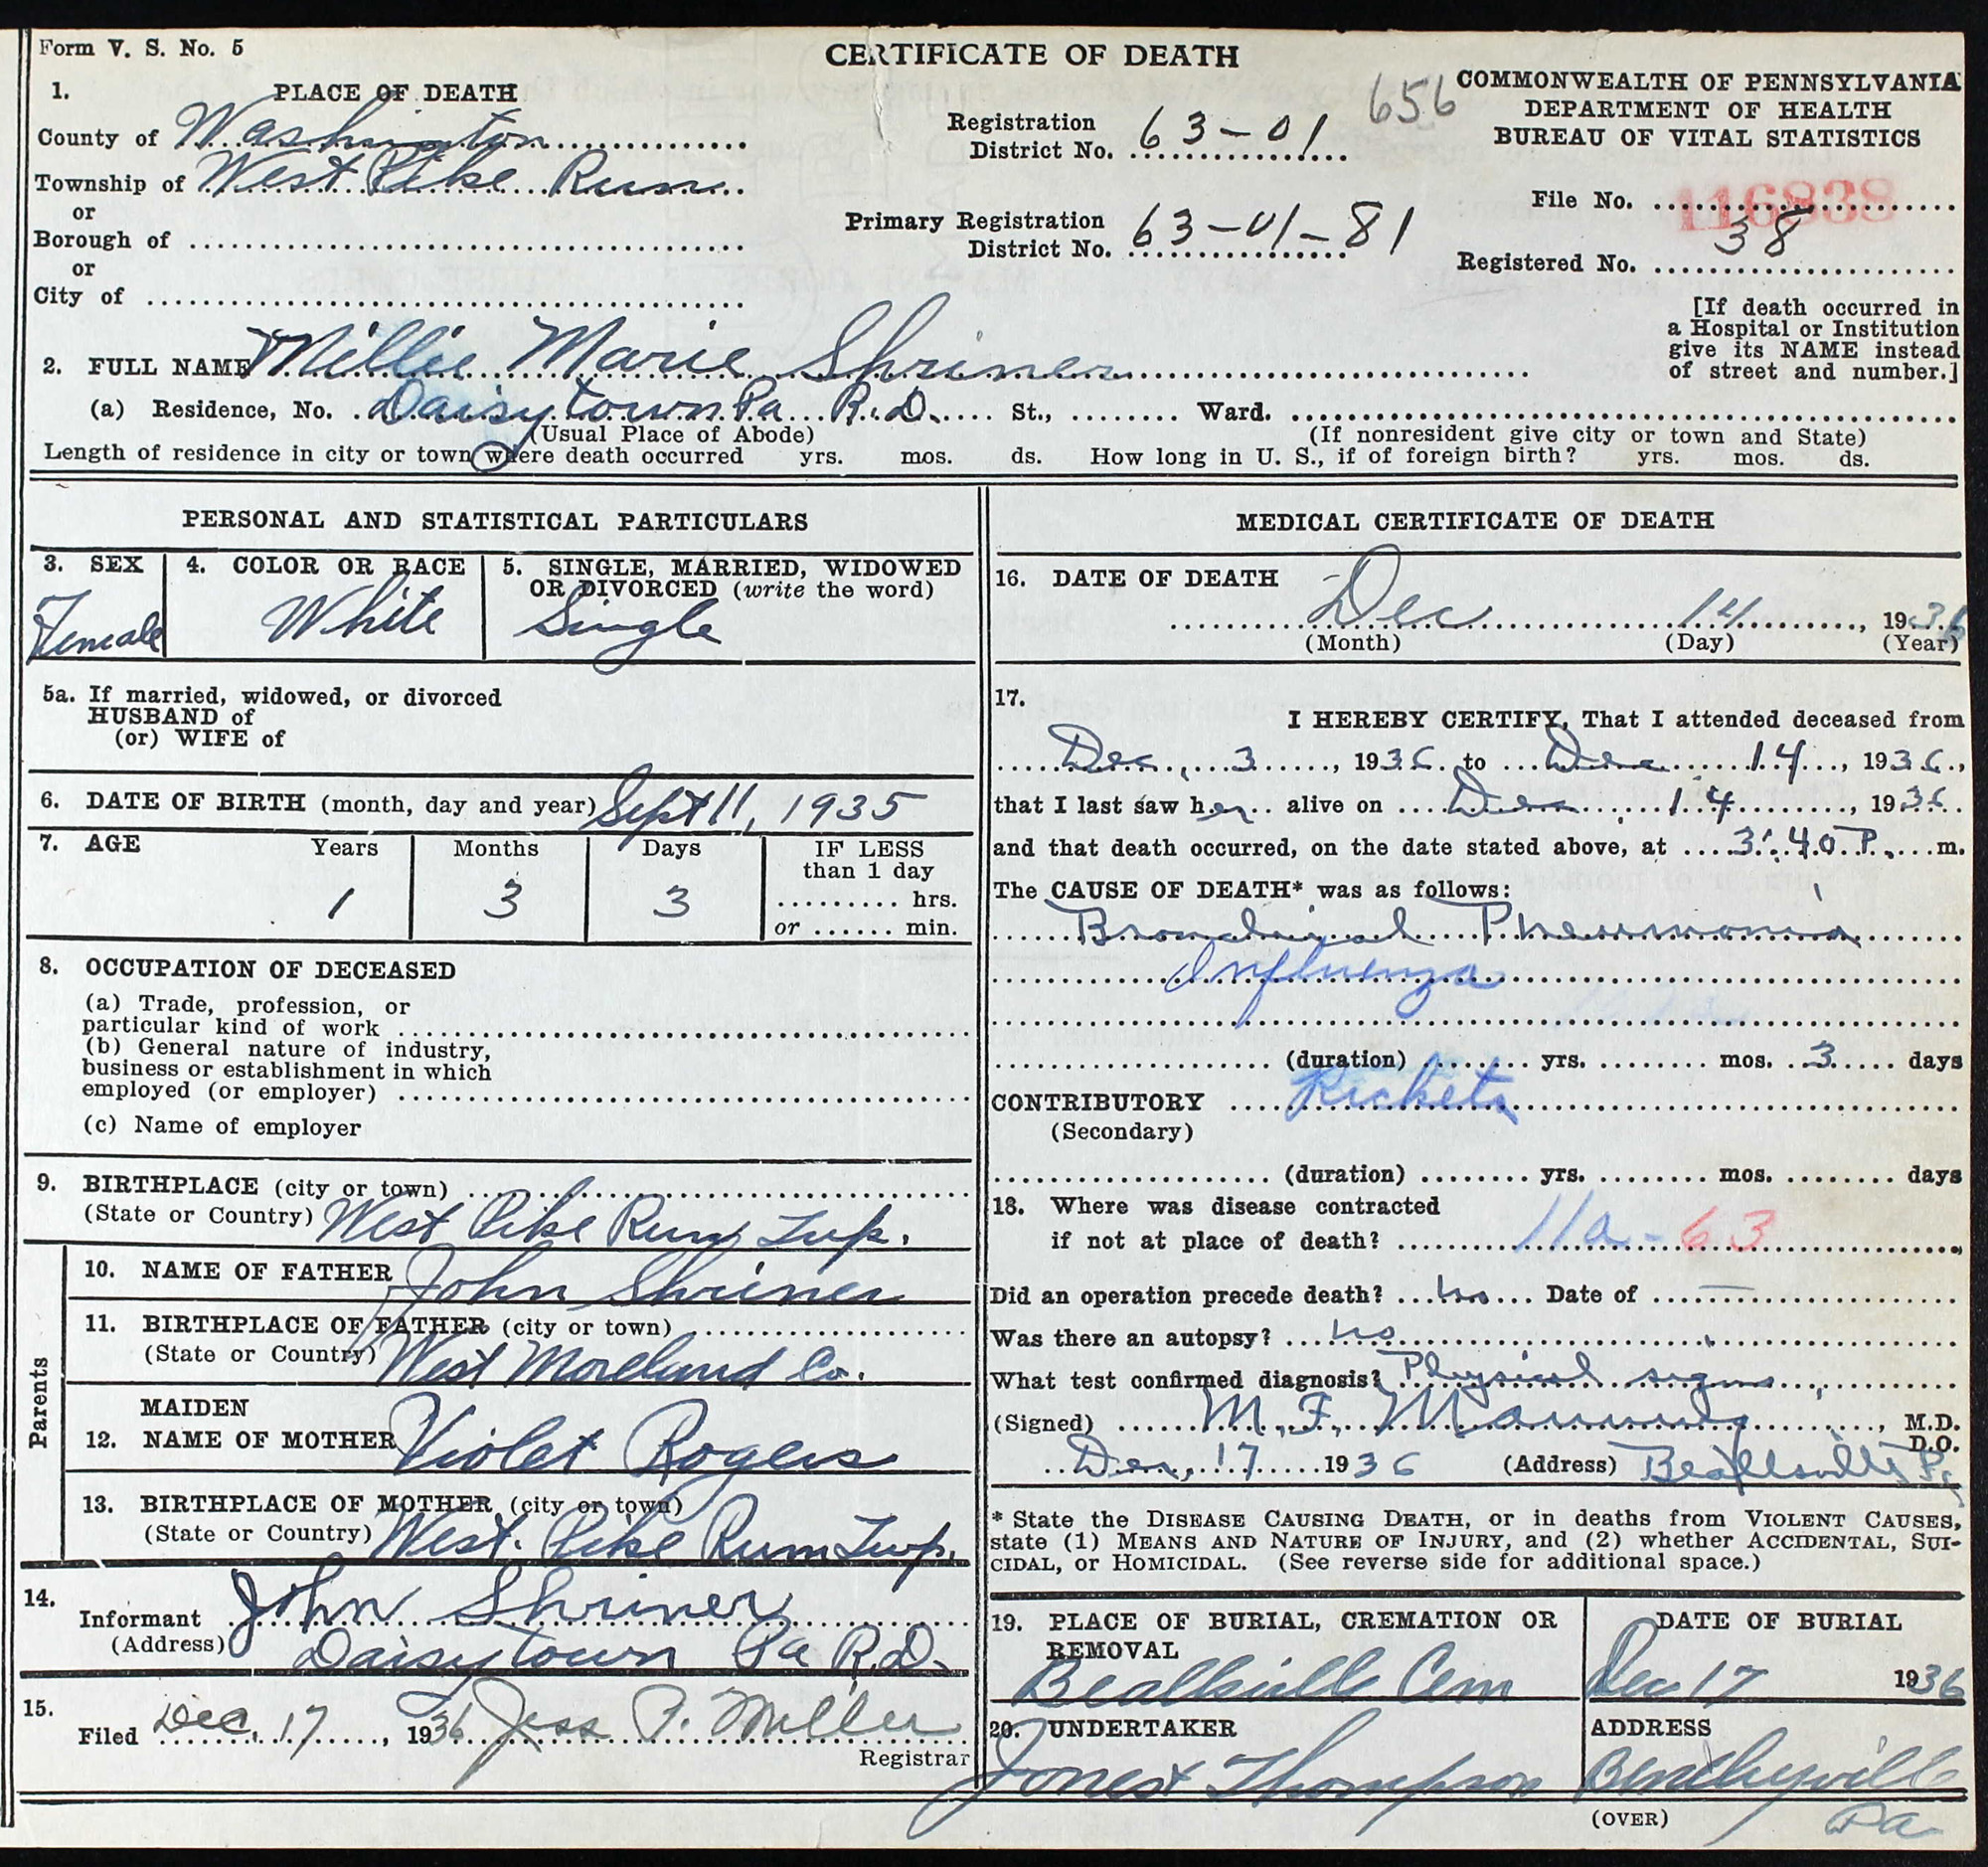 Form V. S. No. 5
CERTIFICATE OF DEATH
656
COMMONWEALTH OF PENNSYLVANIA
DEPARTMENT OF HEALTH
BUREAU OF VITAL STATISTICS
1. PLACE OF DEATH
County of Washington
Township of West Pike Run
or
Borough of
or
City of
Registration District No. 63-01
Primary Registration District No. 63-01-81
File No. 116838
Registered No. 38
[If death occurred in
a Hospital or Institution
give its NAME instead
of street and number.]
2. FULL NAME Millie Marie Shriner
(a) Residence, No. Daisytown Pa R.D. St., Ward.
(Usual Place of Abode) (If nonresident give city or town and State)
Length of residence in city or town where death occurred yrs. mos. ds. How long in U. S., if of foreign birth? yrs. mos. ds.
PERSONAL AND STATISTICAL PARTICULARS
3. SEX
Female
4. COLOR OR RACE
White
5. SINGLE, MARRIED, WIDOWED
OR DIVORCED (write the word)
Single
5a. If married, widowed, or divorced
HUSBAND of
(or) WIFE of
6. DATE OF BIRTH (month, day and year) Sept 11, 1935
7. AGE
Years Months Days
1 3 3
IF LESS
than 1 day
hrs.
or min.
8. OCCUPATION OF DECEASED
(a) Trade, profession, or
particular kind of work
(b) General nature of industry,
business or establishment in which
employed (or employer)
(c) Name of employer
9. BIRTHPLACE (city or town)
(State or Country) West Pike Run Twp.
Parents
10. NAME OF FATHER John Shriner
11. BIRTHPLACE OF FATHER (city or town)
(State or Country) West Moreland Co.
12. MAIDEN NAME OF MOTHER Violet Rogers
13. BIRTHPLACE OF MOTHER (city or town)
(State or Country) West. Pike Run Twp.
14.
Informant John Shriner
(Address) Daisytown Pa R.D.
15.
Filed Dec. 17, 1936 Jess P. Miller
Registrar
MEDICAL CERTIFICATE OF DEATH
16. DATE OF DEATH
Dec 14, 1936
(Month) (Day) (Year)
17.
I HEREBY CERTIFY, That I attended deceased from
Dec, 3, 1936 to Dec 14, 1936,
that I last saw her alive on Dec 14, 1936
and that death occurred, on the date stated above, at 3:40 P. m.
The CAUSE OF DEATH* was as follows:
Bronchial Pneumonia
Influenza
(duration) yrs. mos. 3 days
CONTRIBUTORY Rickets
(Secondary)
(duration) yrs. mos. days
18. Where was disease contracted
if not at place of death? 11a-63
Did an operation precede death? no Date of —
Was there an autopsy? no
What test confirmed diagnosis? Physical signs
(Signed) M. F. Manning, M.D.
D.O.
Dec, 17 1936 (Address) Beallsville Pa
* State the DISEASE CAUSING DEATH, or in deaths from VIOLENT CAUSES,
state (1) MEANS AND NATURE OF INJURY, and (2) whether ACCIDENTAL, SUI-
CIDAL, or HOMICIDAL. (See reverse side for additional space.)
19. PLACE OF BURIAL, CREMATION OR
REMOVAL
Beallsville Cem
DATE OF BURIAL
Dec 17 1936
20. UNDERTAKER
Jones & Thompson
ADDRESS
Bentleyville
Pa
(OVER)